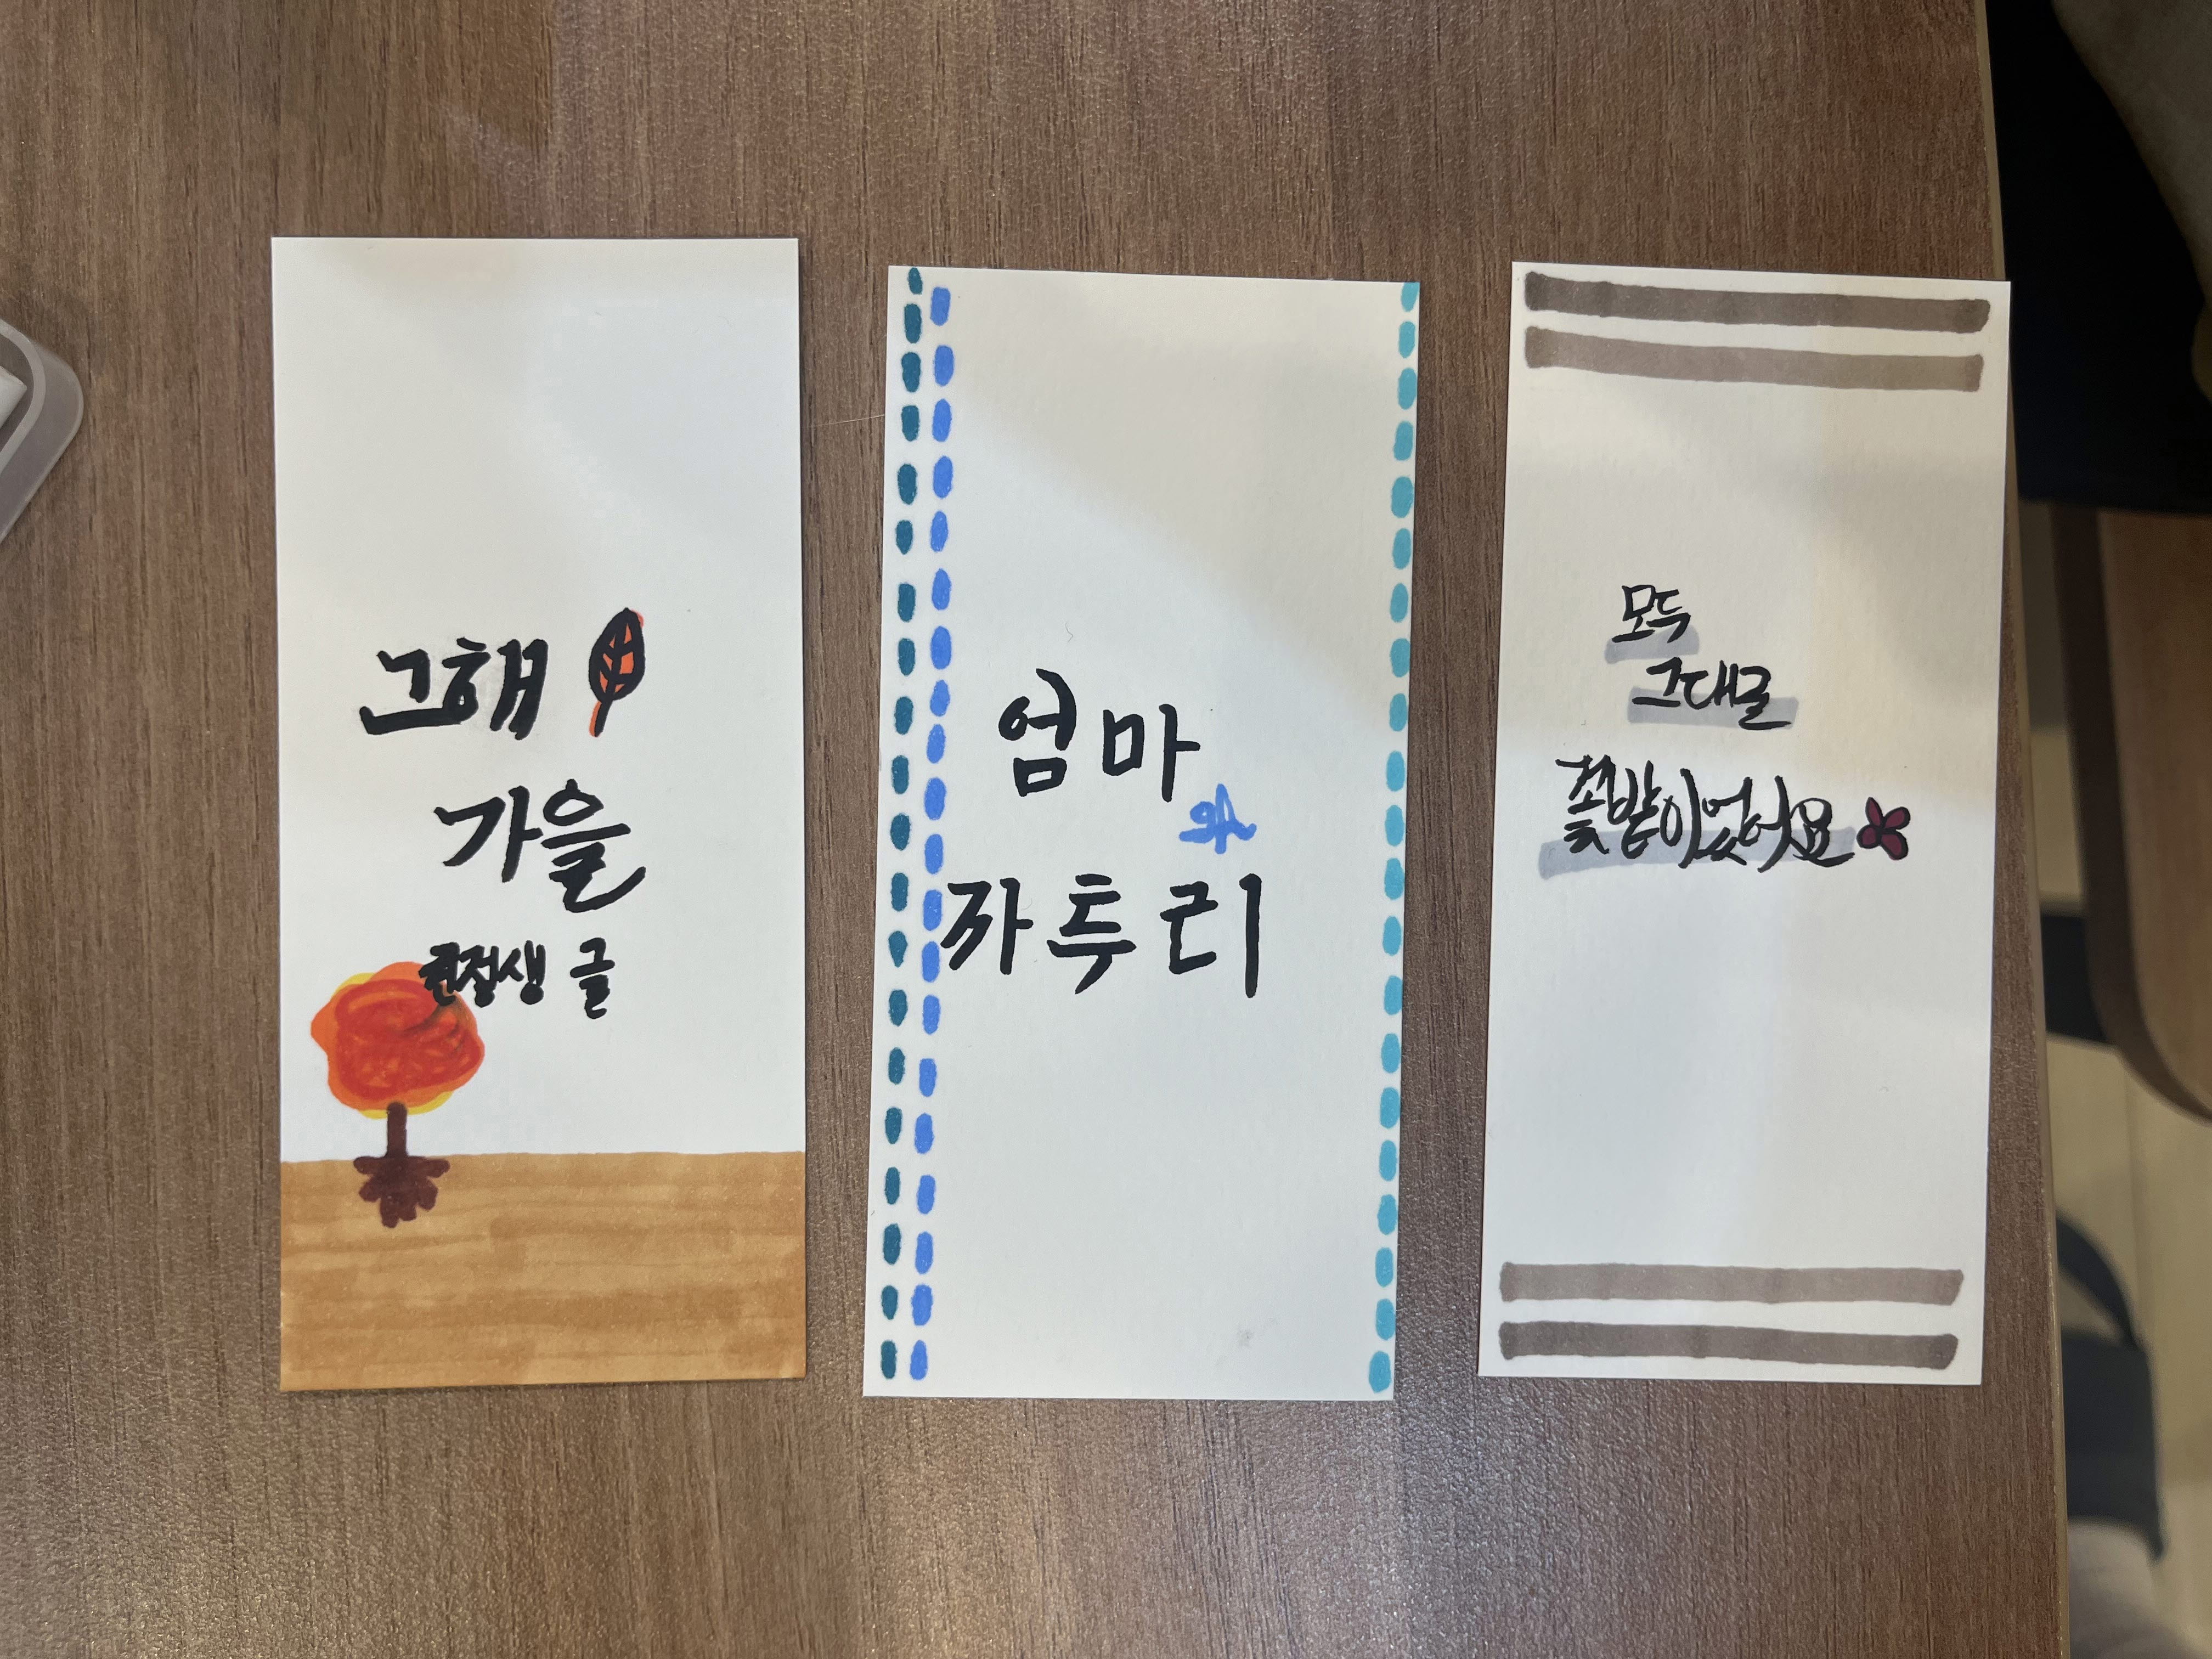 그해
가을
권정생 글
엄마
까투리
모두
그대로
꽃밭이었어요